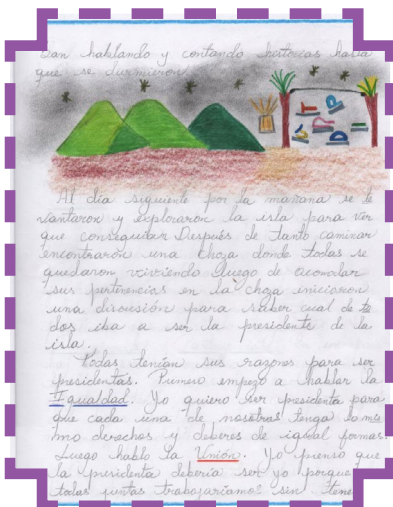 Dan hablando y contando historias hasta
que se durmieron
Al dia siguiente por la mañana se le
vantaron y exploraron la isla para ver
que conseguian Después de tanto caminar
encontraron una choza donde todas se
quedaron viviendo luego de acomodar
sus pertenencias en la choza iniciaron
una discusión para saber cual de to
dos iba a ser la presidente de la
isla.
Todas tenían sus razones para ser
presidentas. Primero empezo a hablar la
Igualdad. Yo quiero ser presidenta para
que cada una de nosotras tenga la mis
mo derechos y deberes de igual formas.
Luego hablo la Unión. Yo pienso que
la presidenta debería ser yo porque
todas juntas trabajaríamos sin tene